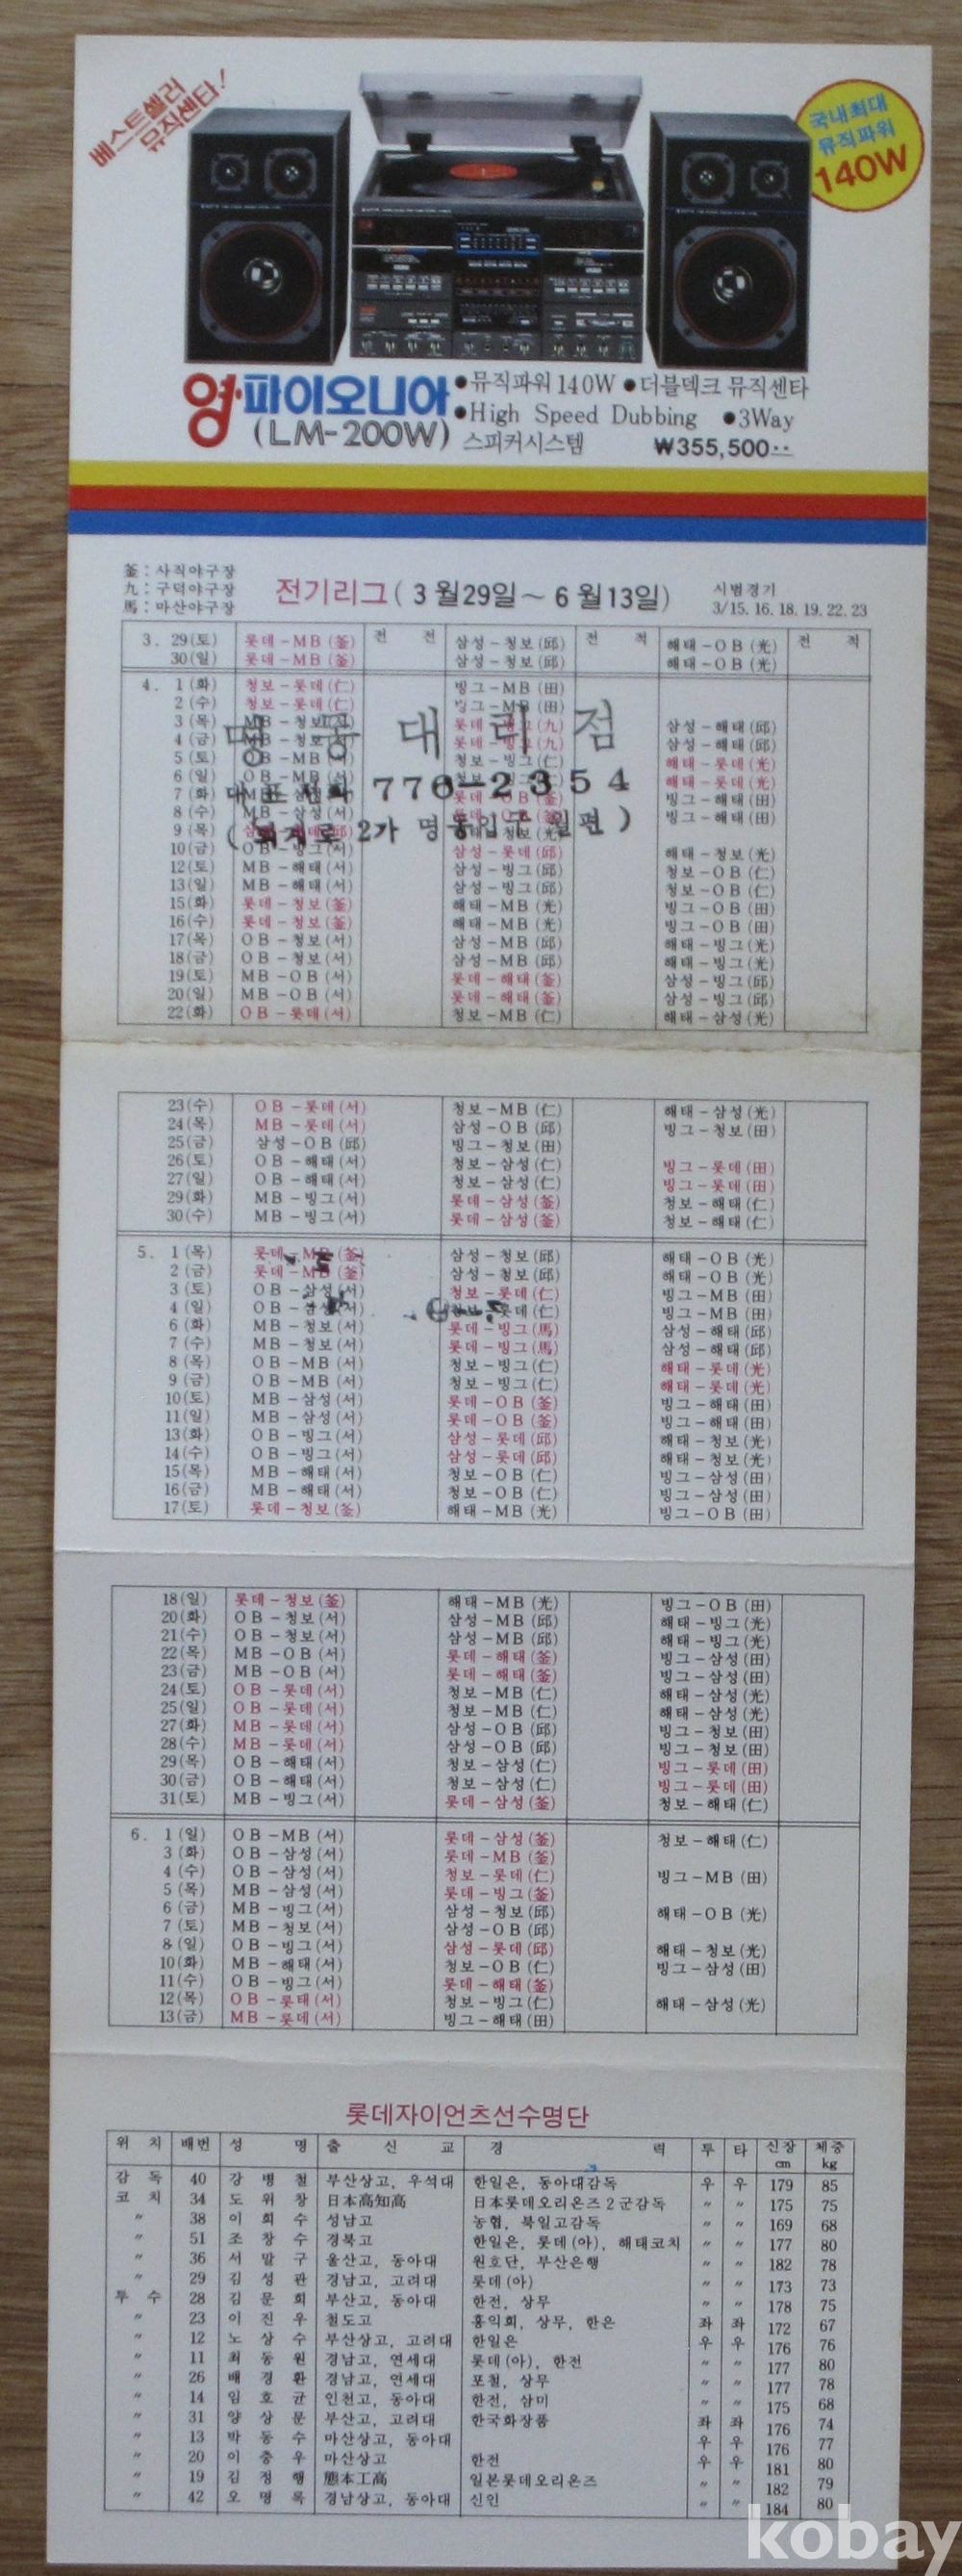 베스트셀러
뮤직센타!
국내최대
뮤직파워
140W
영·파이오니아
(LM-200W)
●뮤직파워 140W ●더블덱크 뮤직센타
●High Speed Dubbing ●3Way
스피커시스템 ₩355,500
釜：사직야구장
九：구덕야구장
馬：마산야구장
전기리그( 3월29일～6월13일)
시범경기
3/15. 16. 18. 19. 22. 23
대리점
776-2354
퇴계로 2가 명동입구
3. 29(토) 롯데-MB(釜) 전 전 삼성-청보(邱) 전 적 해태-OB(光) 전 적
30(일) 롯데-MB(釜) 삼성-청보(邱) 해태-OB(光)
4. 1(화) 청보-롯데(仁) 빙그-MB(田)
2(수) 청보-롯데(仁) 빙그-MB(田)
3(목) MB-청보 롯데 (九) 삼성-해태(邱)
4(금) MB-청보 롯데 (九) 삼성-해태(邱)
5(토) OB-MB(서) 청보-빙그(仁) 해태-롯데(光)
6(일) OB-MB 해태-롯데(光)
7(화) 빙그-해태(田)
8(수) MB-삼성(서) 빙그-해태(田)
9(목)
10(금) OB-빙그(서) 삼성-롯데(邱) 해태-청보(光)
12(토) MB-해태(서) 삼성-빙그(邱) 청보-OB(仁)
13(일) MB-해태(서) 삼성-빙그(邱) 청보-OB(仁)
15(화) 롯데-청보(釜) 해태-MB(光) 빙그-OB(田)
16(수) 롯데-청보(釜) 해태-MB(光) 빙그-OB(田)
17(목) OB-청보(서) 삼성-MB(邱) 해태-빙그(光)
18(금) OB-청보(서) 삼성-MB(邱) 해태-빙그(光)
19(토) MB-OB(서) 롯데-해태(釜) 삼성-빙그(邱)
20(일) MB-OB(서) 롯데-해태(釜) 삼성-빙그(邱)
22(화) OB-롯데(서) 청보-MB(仁) 해태-삼성(光)
23(수) OB-롯데(서) 청보-MB(仁) 해태-삼성(光)
24(목) MB-롯데(서) 삼성-OB(邱) 빙그-청보(田)
25(금) 삼성-OB(邱) 빙그-청보(田)
26(토) OB-해태(서) 청보-삼성(仁) 빙그-롯데(田)
27(일) OB-해태(서) 청보-삼성(仁) 빙그-롯데(田)
29(화) MB-빙그(서) 롯데-삼성(釜) 청보-해태(仁)
30(수) MB-빙그(서) 롯데-삼성(釜) 청보-해태(仁)
5. 1(목) 롯데-MB(釜) 삼성-청보(邱) 해태-OB(光)
2(금) 롯데-MB(釜) 삼성-청보(邱) 해태-OB(光)
3(토) OB-삼성(서) 청보-롯데(仁) 빙그-MB(田)
4(일) OB-삼성(서) 청보-롯데(仁) 빙그-MB(田)
6(화) MB-청보(서) 롯데-빙그(馬) 삼성-해태(邱)
7(수) MB-청보(서) 롯데-빙그(馬) 삼성-해태(邱)
8(목) OB-MB(서) 청보-빙그(仁) 해태-롯데(光)
9(금) OB-MB(서) 청보-빙그(仁) 해태-롯데(光)
10(토) MB-삼성(서) 롯데-OB(釜) 빙그-해태(田)
11(일) MB-삼성(서) 롯데-OB(釜) 빙그-해태(田)
13(화) OB-빙그(서) 삼성-롯데(邱) 해태-청보(光)
14(수) OB-빙그(서) 삼성-롯데(邱) 해태-청보(光)
15(목) MB-해태(서) 청보-OB(仁) 빙그-삼성(田)
16(금) MB-해태(서) 청보-OB(仁) 빙그-삼성(田)
17(토) 롯데-청보(釜) 해태-MB(光) 빙그-OB(田)
18(일) 롯데-청보(釜) 해태-MB(光) 빙그-OB(田)
20(화) OB-청보(서) 삼성-MB(邱) 해태-빙그(光)
21(수) OB-청보(서) 삼성-MB(邱) 해태-빙그(光)
22(목) MB-OB(서) 롯데-해태(釜) 빙그-삼성(田)
23(금) MB-OB(서) 롯데-해태(釜) 빙그-삼성(田)
24(토) OB-롯데(서) 청보-MB(仁) 해태-삼성(光)
25(일) OB-롯데(서) 청보-MB(仁) 해태-삼성(光)
27(화) MB-롯데(서) 삼성-OB(邱) 빙그-청보(田)
28(수) MB-롯데(서) 삼성-OB(邱) 빙그-청보(田)
29(목) OB-해태(서) 청보-삼성(仁) 빙그-롯데(田)
30(금) OB-해태(서) 청보-삼성(仁) 빙그-롯데(田)
31(토) MB-빙그(서) 롯데-삼성(釜) 청보-해태(仁)
6. 1(일) OB-MB(서) 롯데-삼성(釜) 청보-해태(仁)
3(화) OB-삼성(서) 롯데-MB(釜)
4(수) OB-삼성(서) 청보-롯데(仁) 빙그-MB(田)
5(목) MB-삼성(서) 롯데-빙그(釜)
6(금) MB-빙그(서) 삼성-청보(邱) 해태-OB(光)
7(토) MB-청보(서) 삼성-OB(邱)
8(일) OB-빙그(서) 삼성-롯데(邱) 해태-청보(光)
10(화) MB-해태(서) 청보-OB(仁) 빙그-삼성(田)
11(수) OB-빙그(서) 롯데-해태(釜)
12(목) OB-롯태(서) 청보-빙그(仁) 해태-삼성(光)
13(금) MB-롯데(서) 빙그-해태(田)
롯데자이언츠선수명단
위 치 배번 성 명 출 신 교 경 력 투 타 신장cm 체중kg
감 독 40 강 병 철 부산상고, 우석대 한일은, 동아대감독 우 우 179 85
코 치 34 도 위 창 日本高知高 日本롯데오리온즈2군감독 〃 〃 175 75
〃 38 이 희 수 성남고 농협, 북일고감독 〃 〃 169 68
〃 51 조 창 수 경북고 한일은, 롯데(아), 해태코치 〃 〃 177 80
〃 36 서 말 구 울산고, 동아대 원호단, 부산은행 〃 〃 182 78
〃 29 김 성 관 경남고, 고려대 롯데(아) 〃 〃 173 73
투 수 28 김 문 희 부산고, 동아대 한전, 상무 〃 〃 178 75
〃 23 이 진 우 철도고 흥익회, 상무, 한은 좌 좌 172 67
〃 12 노 상 수 부산상고, 고려대 한일은 우 우 176 76
〃 11 최 동 원 경남고, 연세대 롯데(아), 한전 〃 〃 177 80
〃 26 배 경 환 경남고, 연세대 포철, 상무 〃 〃 177 78
〃 14 임 호 균 인천고, 동아대 한전, 삼미 〃 〃 175 68
〃 31 양 상 문 부산고, 고려대 한국화장품 좌 좌 176 74
〃 13 박 동 수 마산상고, 동아대 우 우 176 77
〃 20 이 충 우 마산상고 한전 우 우 181 80
〃 19 김 정 행 熊本工高 일본롯데오리온즈 〃 〃 182 79
〃 42 오 명 록 경남상고, 동아대 신인 〃 〃 184 80
kobay